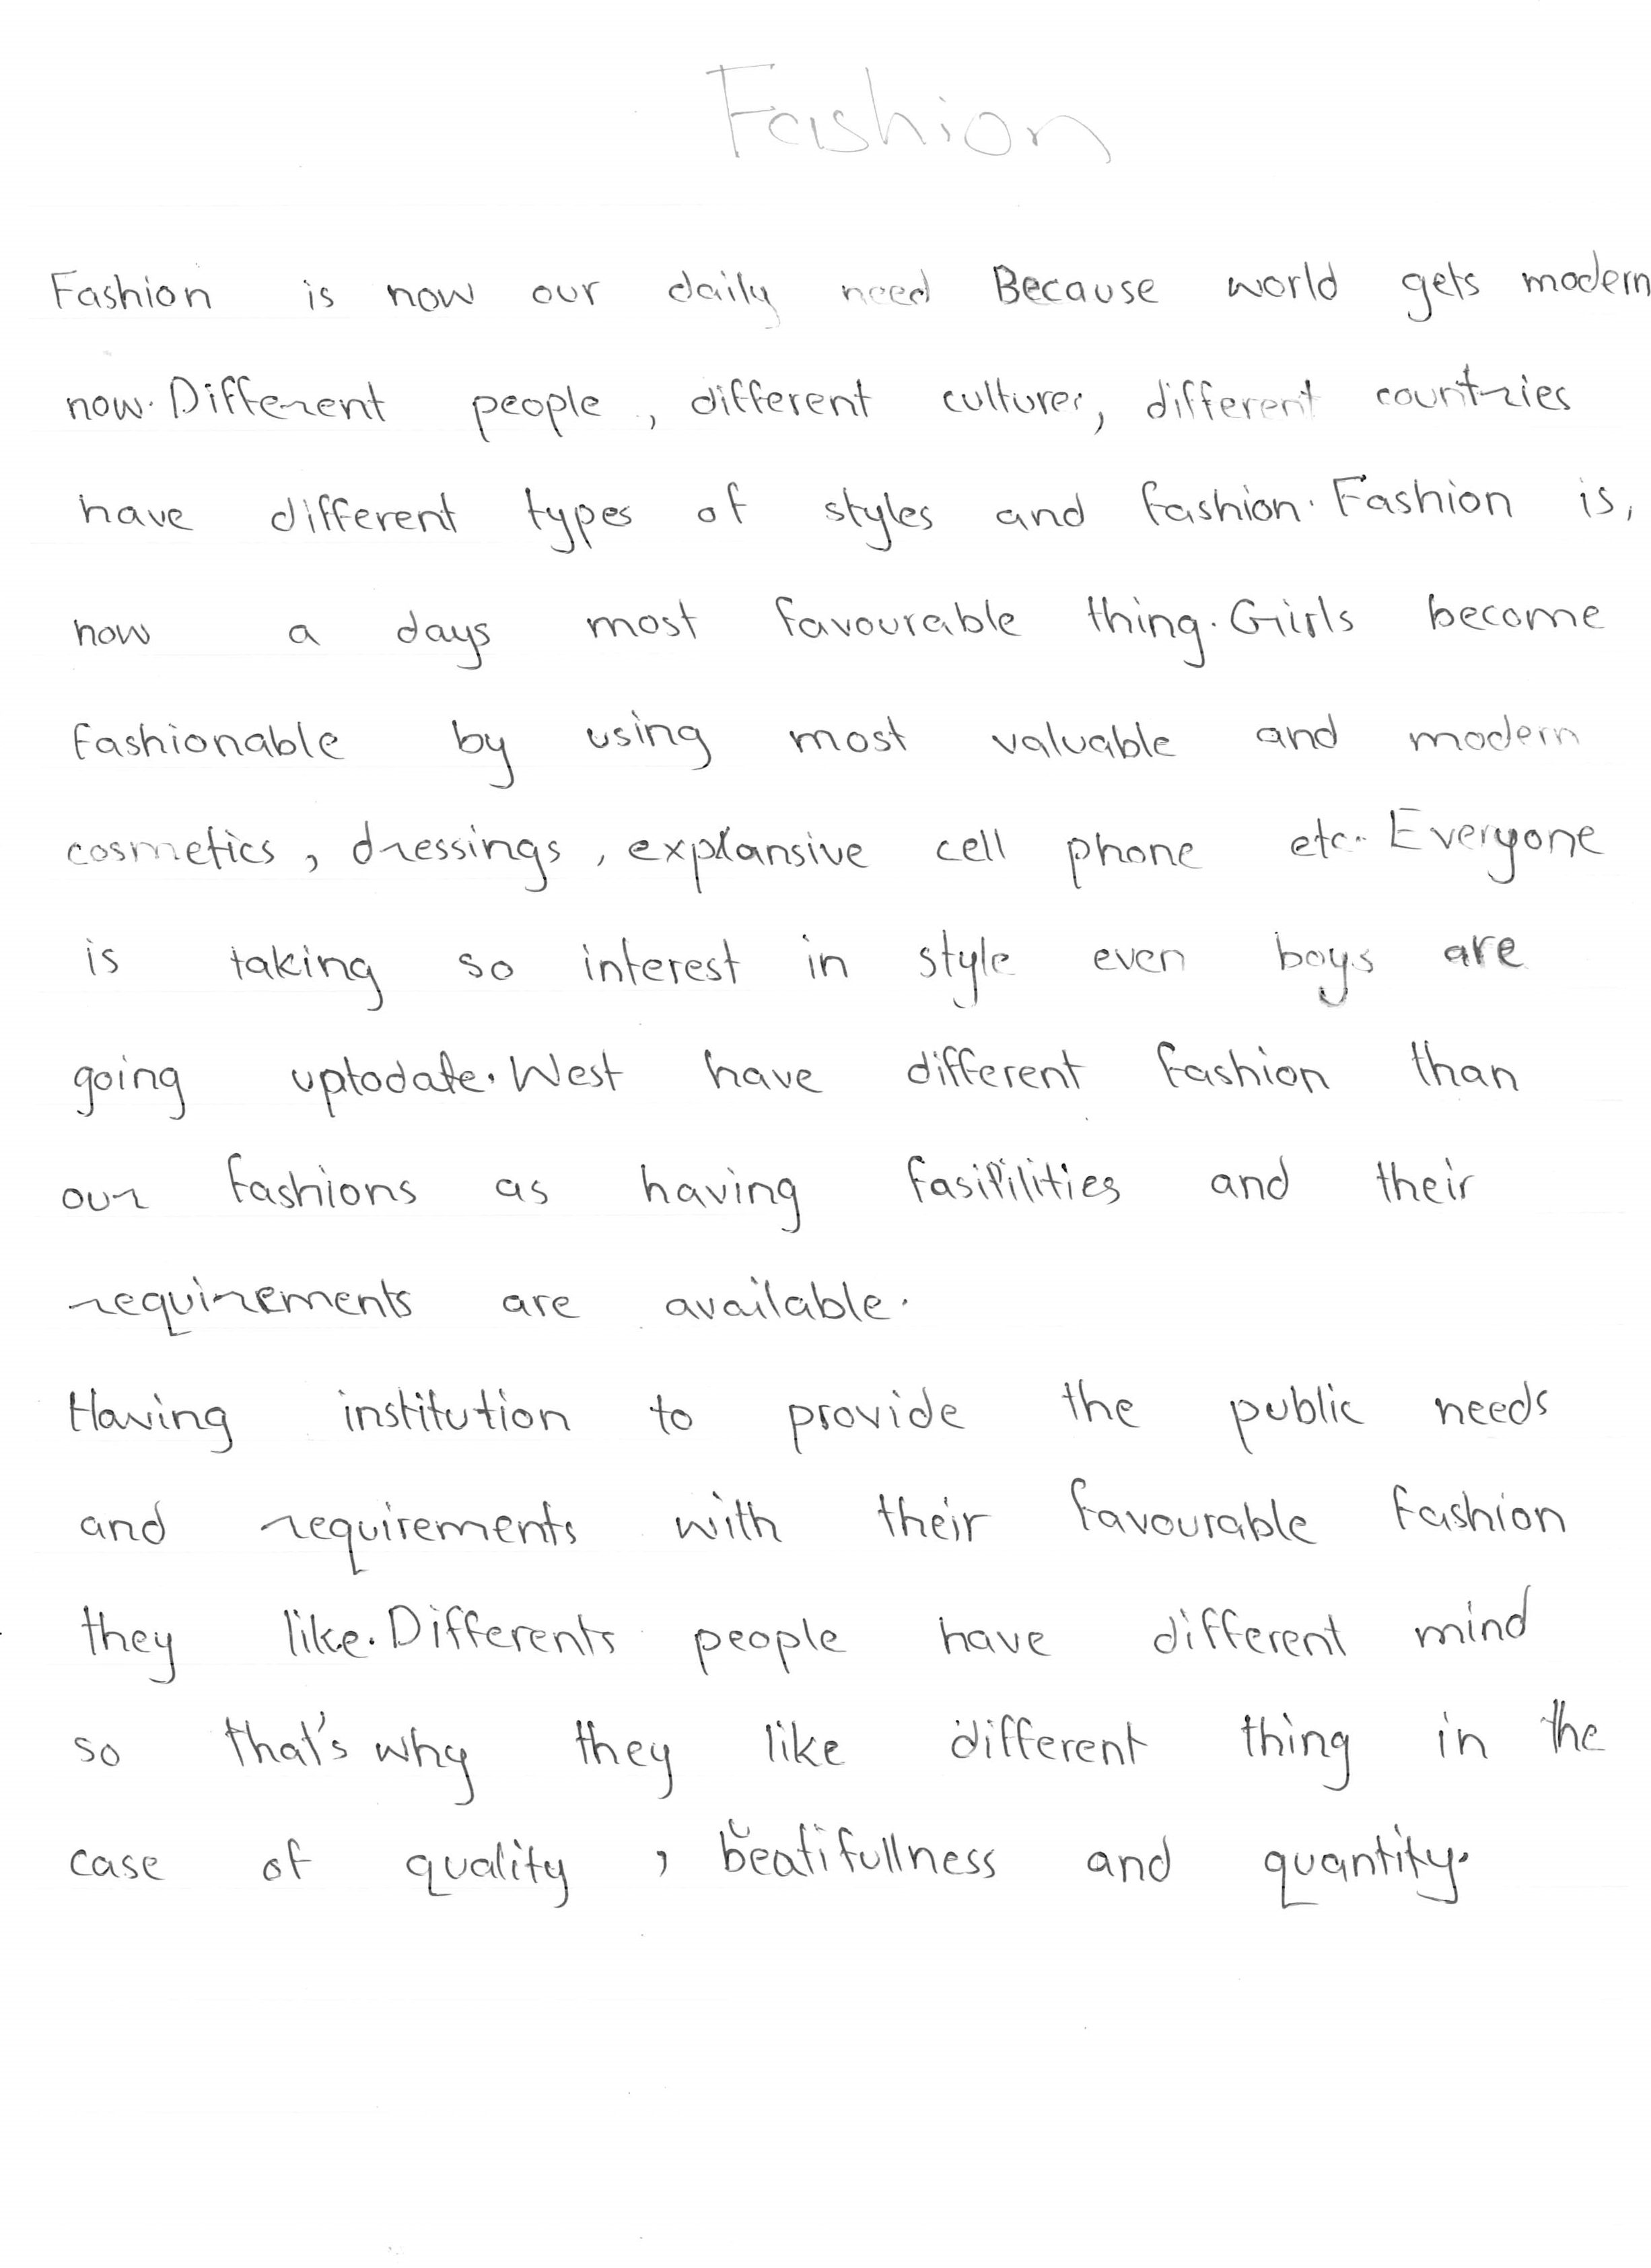 Fashion
Fashion is now our daily need Because world gets modern
now. Different people, different cultures, different countries
have different types of styles and fashion. Fashion is,
now a days most favourable thing. Girls become
fashionable by using most valuable and modern
cosmetics, dressings, explansive cell phone etc.. Everyone
is taking so interest in style even boys are
going uptodate. West have different fashion than
our fashions as having fasitilities and their
requirements are available.
Having institution to provide the public needs
and requirements with their favourable fashion
they like. Differents people have different mind
so that's why they like different thing in the
case of quality, beatifullness and quantity.